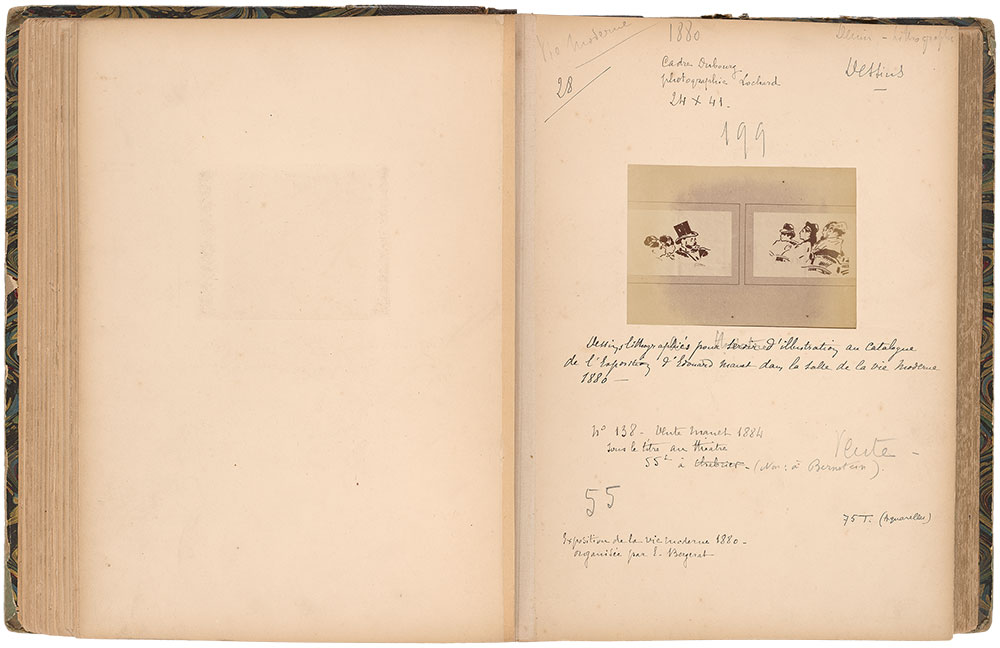 Vie Moderne
28
1880
Dessin - lithographie
Cadre Dubourg
photographie Lochard
24 x 41 -
Dessins
199
Dessins lithographiés pour servir d'illustration au Catalogue
de l'Exposition d'Edouard Manet dans la salle de la vie Moderne
1880 -
N° 138 - Vente Manet 1884
sous le titre au théâtre
55 à - (Non : à Bernstein).
Vente -
55
75 T. (Aquarelles)
Exposition de la vie moderne 1880 -
organisée par E. Bergerat